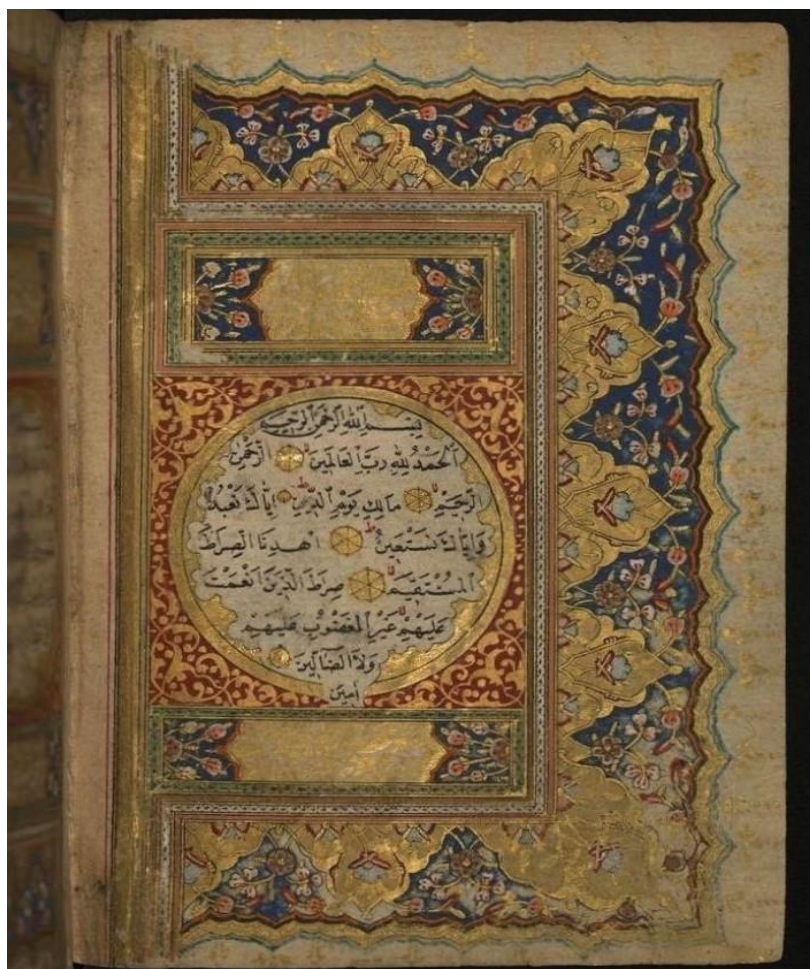 بِسْمِ اللهِ الرَّحْمٰنِ الرَّحِيمِ
اَلْحَمْدُ لِلّٰهِ رَبِّ الْعَالَمِينَ الرَّحْمٰنِ
الرَّحِيمِ مَالِكِ يَوْمِ الدِّينِ اِيَّاكَ نَعْبُدُ
وَاِيَّاكَ نَسْتَعِينُ اِهْدِنَا الصِّرَاطَ
الْمُسْتَقِيمَ صِرَاطَ الَّذِينَ اَنْعَمْتَ
عَلَيْهِمْ غَيْرِ الْمَغْضُوبِ عَلَيْهِمْ
وَلَا الضَّالِّينَ
اٰمين